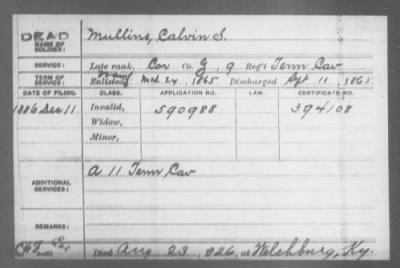 DEAD
NAME OF SOLDIER:
Mullins, Calvin S.
SERVICE:
Late rank, Cor Co. G, 9 Reg't Tenn Cav
TERM OF SERVICE:
Enlisted Mch 24, 1865 Discharged Sept 11, 1865
DATE OF FILING. CLASS. APPLICATION NO. LAW. CERTIFICATE NO.
1886 Dec 11 Invalid, 590988 394108
Widow,
Minor,
ADDITIONAL SERVICES:
A 11 Tenn Cav
REMARKS:
Died Aug 23, 1926, at Welshburg, Ky.